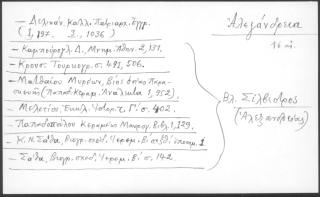 — Δελικάν. Καλλ. Πατριαρχ. Ἔγγρ.
(1, 197. 3, 1036)
— Καμπούρογλ. Δ., Μνημ. Ἀθην. 2, 151.
— Κρουσ. Τουρκογρ. σ. 491, 506.
— Μαθαίου Μυρέων, βίος ὁσίας Παρα-
σκευῆς (Παπαδ. Κεραμ. Ἀνάλεκτα 1, 952).
— Μελετίου, Ἐκκλ. Ἱστορ. τ. Γ΄. σ. 402.
— Παπαδοπούλου Κεραμέως Μαυρογ. Βιβλ. 1, 129.
— Κ. Ν. Σάθα, βιογρ. σχεδ. Ἱερεμ. β΄
— Σάθα, Βιογρ. σχεδ. Ἱερεμ. Β΄. σ. 142
Ἀλεξάνδρεια
16 αἰ.
Βλ. Σίλβεστρος
(Ἀλεξανδρείας)